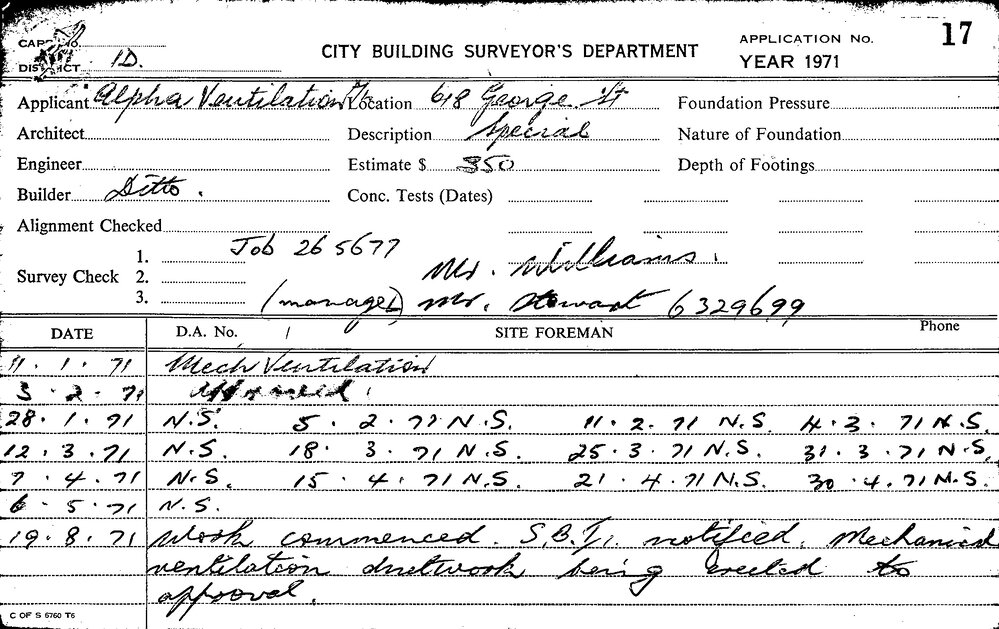 CARD No.
DISTRICT 1D.
CITY BUILDING SURVEYOR'S DEPARTMENT
APPLICATION No. 17
YEAR 1971
Applicant Alpha Ventilation Location 618 George St Foundation Pressure
Architect Description Special Nature of Foundation
Engineer Estimate $ 350 Depth of Footings
Builder Ditto. Conc. Tests (Dates)
Alignment Checked
Survey Check 1. Job 265677
2. Mr. Williams.
3. (manager) Mr. Stewart 6329699
DATE D.A. No. / SITE FOREMAN Phone
11.1.71 Mech Ventilation
3.2.71 Approved.
28.1.71 N.S. 5.2.71 N.S. 11.2.71 N.S. 4.3.71 N.S.
12.3.71 N.S. 18.3.71 N.S. 25.3.71 N.S. 31.3.71 N.S.
7.4.71 N.S. 15.4.71 N.S. 21.4.71 N.S. 30.4.71 N.S.
6.5.71 N.S.
19.8.71 Work commenced. notified. Mechanical
ventilation ductwork being erected to
approval.
C OF S 6760 T6